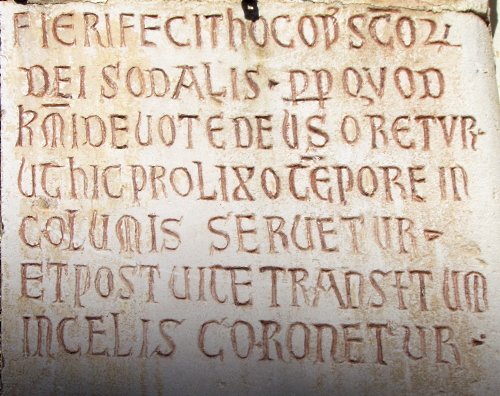 FIERI FECIT hOC OP̄S SCOꝝ
DEI SODALIS · PP QVOD
KM̄I DEUOTE DEUS ORETVR
UT hIC PROLIXO TĒPORE IN
COLUMIS SERUETUR
ET POST UITE TRANSITUM
IN CELIS CORONETUR ·